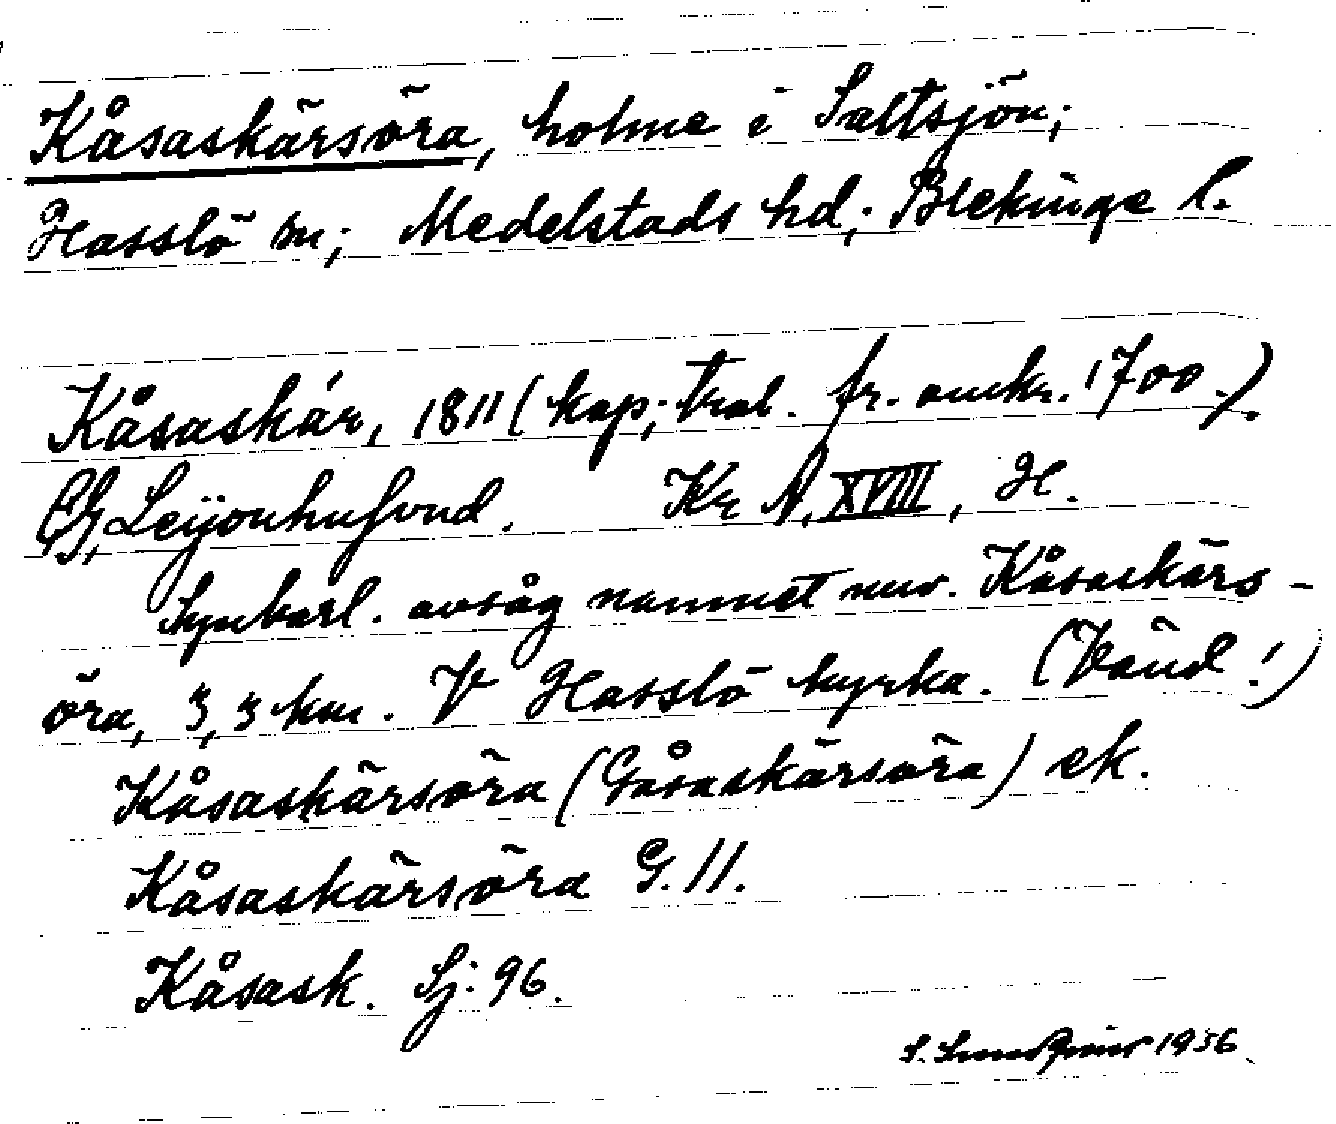 Kåsaskärsöra, holme i Saltsjön;
Hasslö sn; Medelstads hd; Blekinge l.
Kåsaskär, 1811 (kop; trol. fr. omkr. 1700.).
CG, Leijonhufvud. Kr A, XVIII, H.
Synbarl. avsåg namnet nuv. Kåsaskärs-
öra, 3,3 km. V Hasslö kyrka. (Vänd!)
Kåsaskärsöra (Gåsaskärsöra) ek.
Kåsaskärsöra G. 11.
Kåsask. Sj: 96.
S. 1936